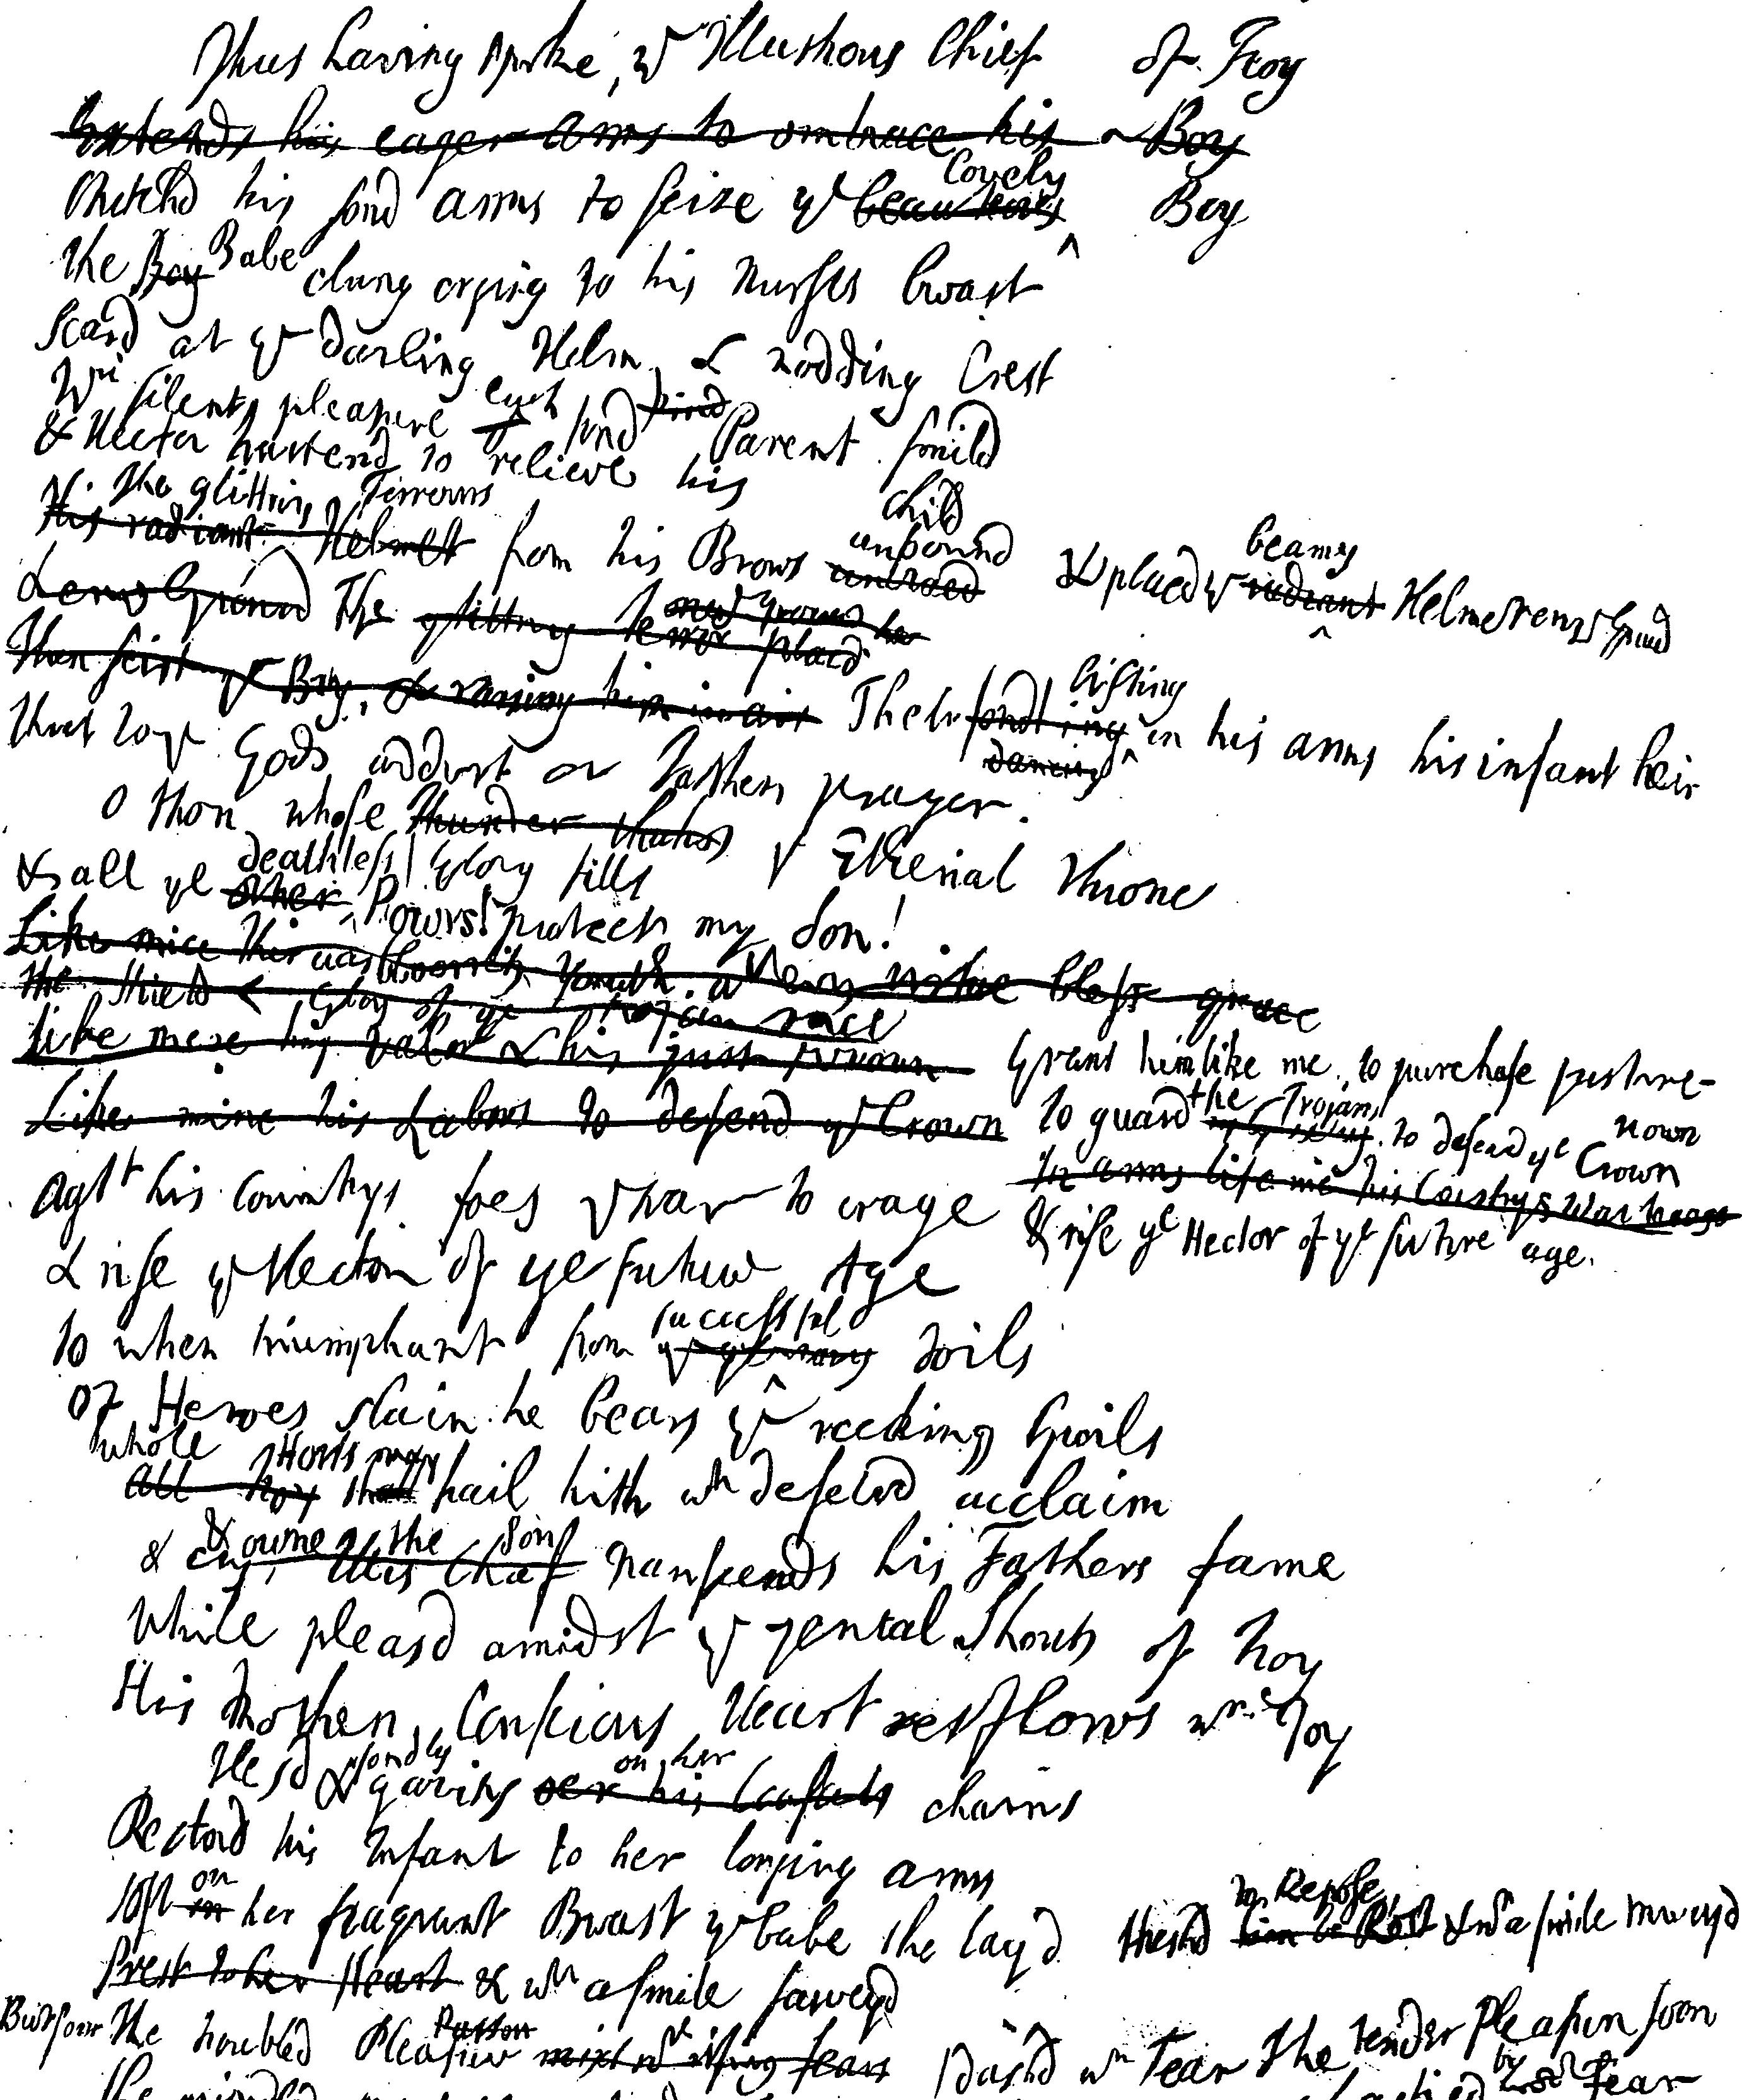 Thus having spoke, ye Illustrous Chief of Troy
Extends his eager arms to embrace his Boy
Stretchd his fond arms to seize ye beauteous Lovely Boy
The Boy Babe clung crying to his Nurses breast
Scard at ye dazling Helm, & nodding Crest
Wth silent pleasure each fond Parent smild
& Hector hastend to relieve his child
The glittring Terrours
His radiant Helmet from his Brows unbound & placd ye radiant beamy Helmet on ye Ground
The glittring
Then seizd ye Boy, & raising him in air Then lifting in his arms his infant heir
dancing
Thus to ye Gods addrest a Fathers prayer.
O thou, whose thunder shakes ye Etherial Throne
glory fills
& all ye other deathless Powrs! protect my Son!
Like mine this
The Shield & Glory of ye Trojan race
Like mine his valour & his just renown Grant him like me, to purchase just re-
nown
Like mine his Labours to defend ye Crown To guard the Trojans, to defend ye Crown
In arms like me his Country's War to wage
Agst his Countrys foes ye war to wage
& rise ye Hector of ye future age.
& rise ye Hector of ye Future Age
So when triumphant from successful Toils
Of Heroes slain he bears ye reeking Spoils
whole Hosts may
All Troy shall hail him wth deservd acclaim
& owne the Son
& cry, this Chief transcends his Fathers fame
While pleasd amidst ye genral shouts of Troy
His Mothers Conscious Heart oreflows wth Joy
He sd & fondly gazing on her charms
Restord his Infant to her longing arms
Soft on in her fragrant Breast ye babe she layd Husht to Repose & wth a smile survey'd
Prest to her Heart & wth a smile surveyd
But soon The troubled Pleasure Passion mixt wth rising fears dash'd wth Fear The tender Pleasure soon
by Fear